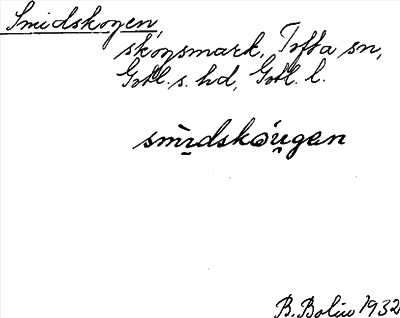 Smidskogen,
skogsmark, Tofta sn,
Gotl. s. hd, Gotl. l.
smı̯̀dskǝu̯gen
B. Bolin 1932